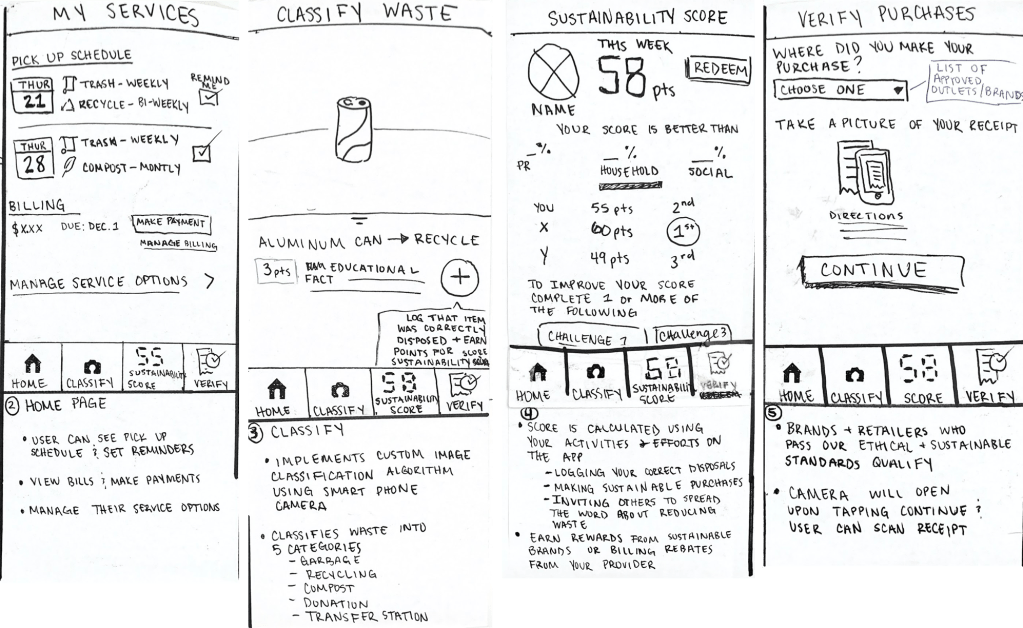 MY SERVICES
PICK UP SCHEDULE
THUR
21
TRASH - WEEKLY
RECYCLE - BI-WEEKLY
REMIND
ME
THUR
28
TRASH - WEEKLY
COMPOST - MONTLY
BILLING
$XXX DUE: DEC. 1 MAKE PAYMENT
MANAGE BILLING
MANAGE SERVICE OPTIONS >
55
HOME
CLASSIFY
SUSTAINABILITY
SCORE
VERIFY
② HOME PAGE
• USER CAN SEE PICK UP
SCHEDULE & SET REMINDERS
• VIEW BILLS & MAKE PAYMENTS
• MANAGE THEIR SERVICE OPTIONS
CLASSIFY WASTE
ALUMINUM CAN → RECYCLE
3 pts
EDUCATIONAL
FACT
+
LOG THAT ITEM
WAS CORRECTLY
DISPOSED + EARN
POINTS FOR SCORE
SUSTAINABILITY
58
HOME
CLASSIFY
SUSTAINABILITY
SCORE
VERIFY
③ CLASSIFY
• IMPLEMENTS CUSTOM IMAGE
CLASSIFICATION ALGORITHM
USING SMART PHONE
CAMERA
• CLASSIFIES WASTE INTO
5 CATEGORIES
- GARBAGE
- RECYCLING
- COMPOST
- DONATION
- TRANSFER STATION
SUSTAINABILITY SCORE
NAME
THIS WEEK
58 pts
REDEEM
YOUR SCORE IS BETTER THAN
_% _% _%
PR HOUSEHOLD SOCIAL
YOU 55 pts 2nd
X 60 pts 1st
Y 49 pts 3rd
TO IMPROVE YOUR SCORE
COMPLETE 1 OF MORE OF
THE FOLLOWING
CHALLENGE 1
Challenge 3
58
HOME
CLASSIFY
SUSTAINABILITY
SCORE
VERIFY
④
• SCORE IS CALCULATED USING
YOUR ACTIVITIES & EFFORTS ON
THE APP
- LOGGING YOUR CORRECT DISPOSALS
- MAKING SUSTAINABLE PURCHASES
- INVITING OTHERS TO SPREAD
THE WORD ABOUT REDUCING
WASTE
• EARN REWARDS FROM SUSTAINABLE
BRANDS OR BILLING REBATES
FROM YOUR PROVIDER
VERIFY PURCHASES
WHERE DID YOU MAKE YOUR
PURCHASE?
CHOOSE ONE
LIST OF
APPROVED
OUTLETS/BRANDS
TAKE A PICTURE OF YOUR RECEIPT
DIRECTIONS
CONTINUE
58
HOME
CLASSIFY
SCORE
VERIFY
⑤
• BRANDS + RETAILERS WHO
PASS OUR ETHICAL + SUSTAINABLE
STANDARDS QUALIFY
• CAMERA WILL OPEN
UPON TAPPING CONTINUE &
USER CAN SCAN RECEIPT